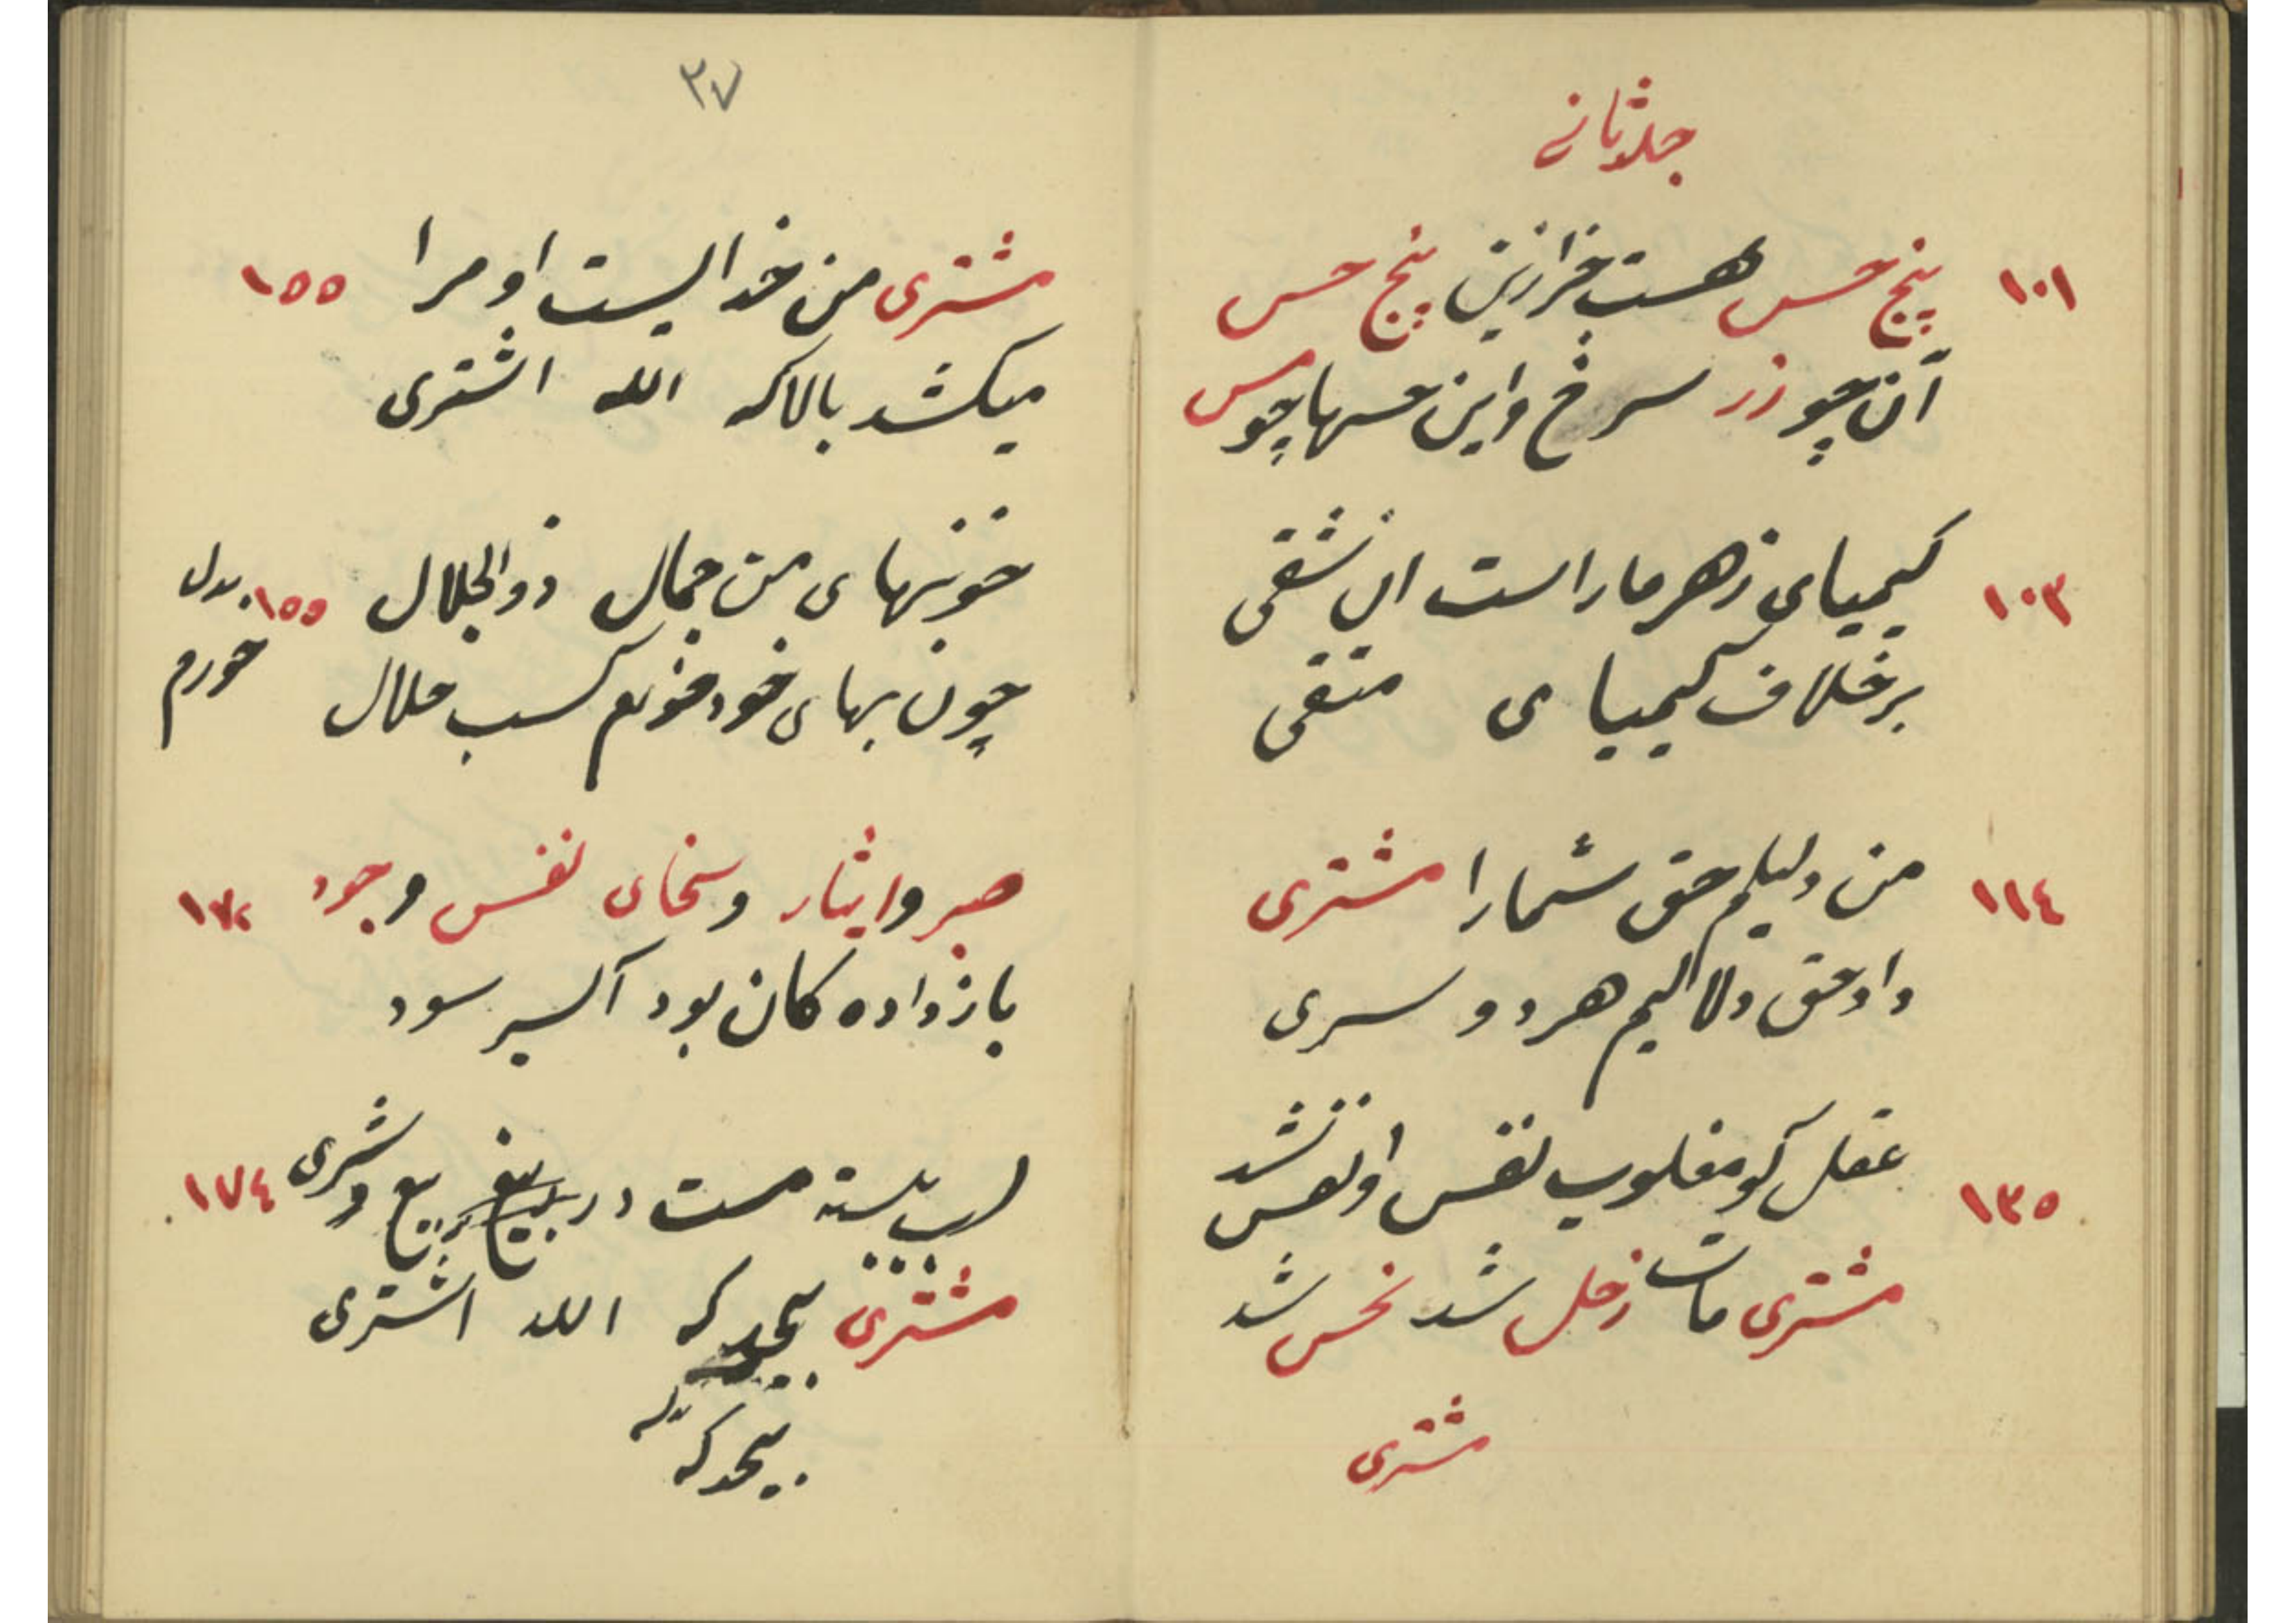 جلد ثانی
۱۰۱ پنج حس هست جز ازین پنج حس
آن چو زر سرخ و این حسها چو مس
۱۰۳ کیمیای زهر مار است ان شقی
بر خلاف کیمیای متقی
۱۱٤ من دلیلم حق شما را مشتری
داد حق دلالیم هر دو سری
۱۳٥ عقل کو مغلوب نفس او نفس شد
مشتری مات زحل شد نحس شد
مشتری
۳۷
مشتری من خدایست او مرا ۱٥٥
میکشد بالا که الله اشتری
خونبهای من جمال ذو الجلال ۱٥٥
خونبهای خود خورم کسب حلال
بدل
خورم
صبر و ایثار و سخای نفس و جود
باز داده کان بود آکسیر سود
لب بسته مست در بیع و شری ۱۷٤
مشتری بیحد که الله اشتری
بیحد که